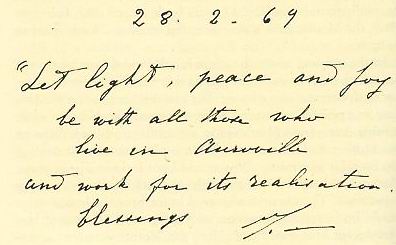 28.2-69
"Let light, peace and joy
be with all those who
live in Auroville
and work for its realisation.
blessings